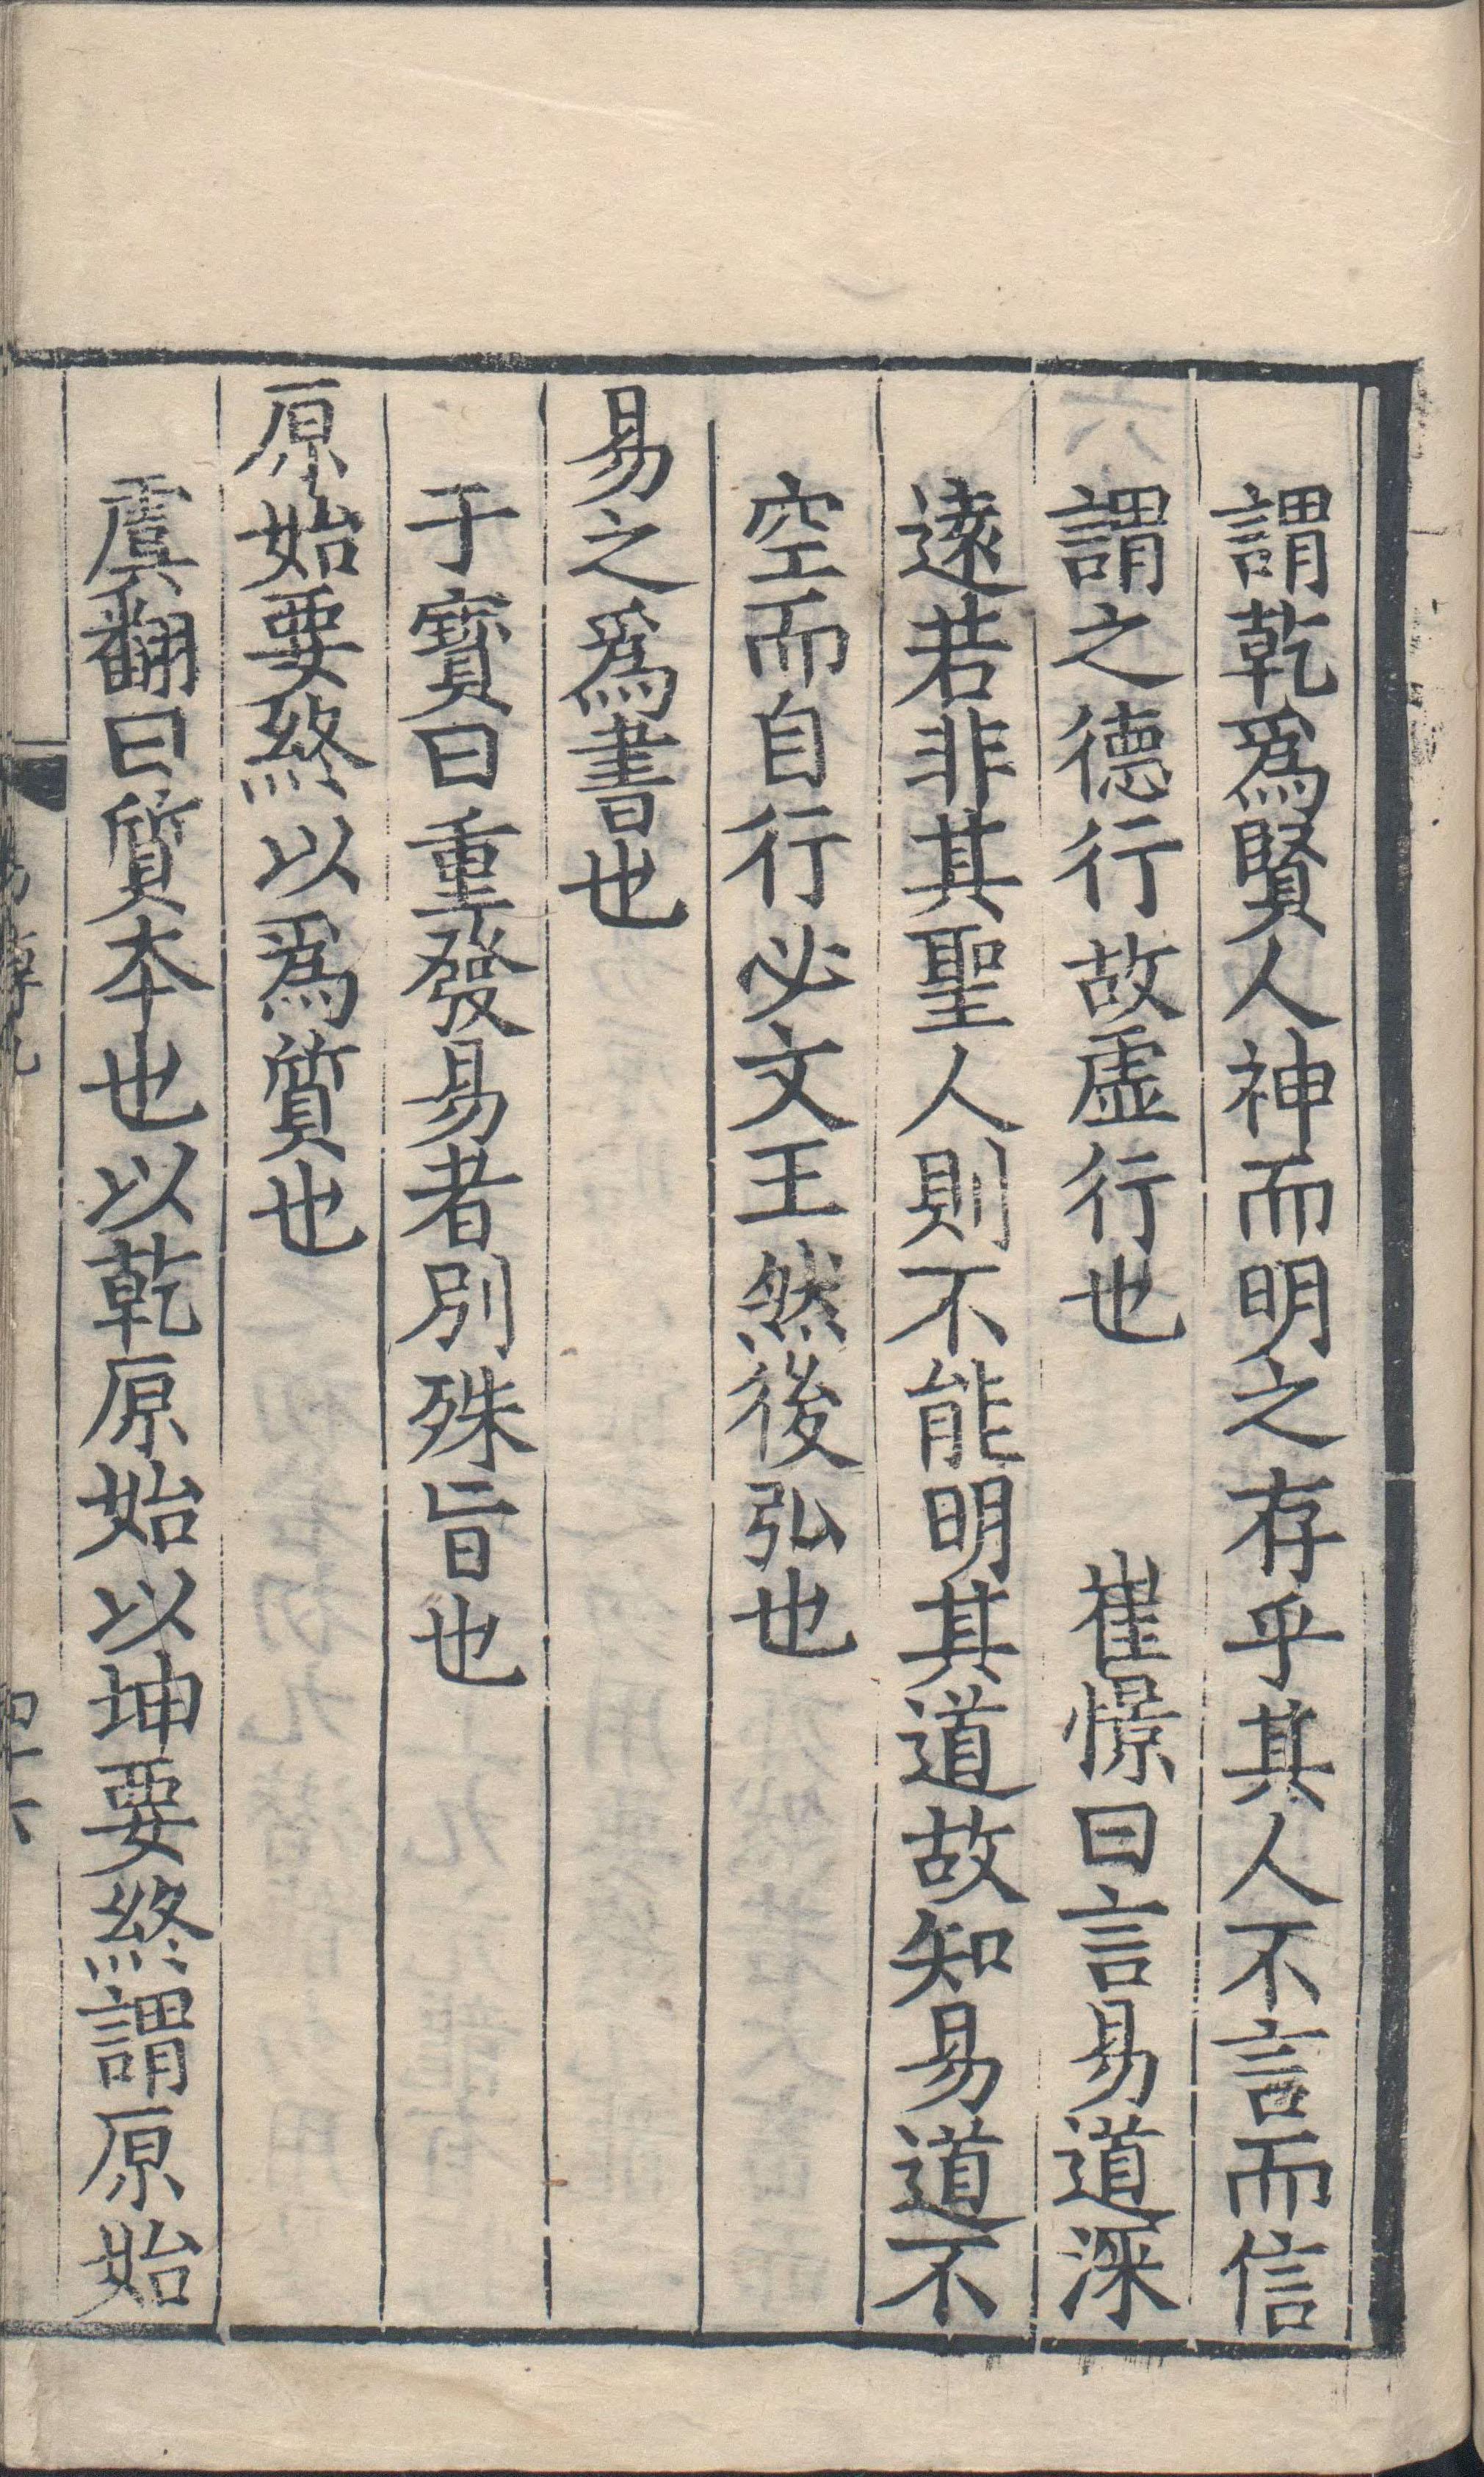 謂乾爲賢人神而明之存乎其人不言而信
謂之德行故虛行也　崔憬曰言易道深
遠若非其聖人則不能明其道故知易道不
空而自行必文王然後弘也
易之爲書也
于寶曰重發易者別殊旨也
原始要終以爲質也
虞翻曰質本也以乾原始以坤要終謂原始